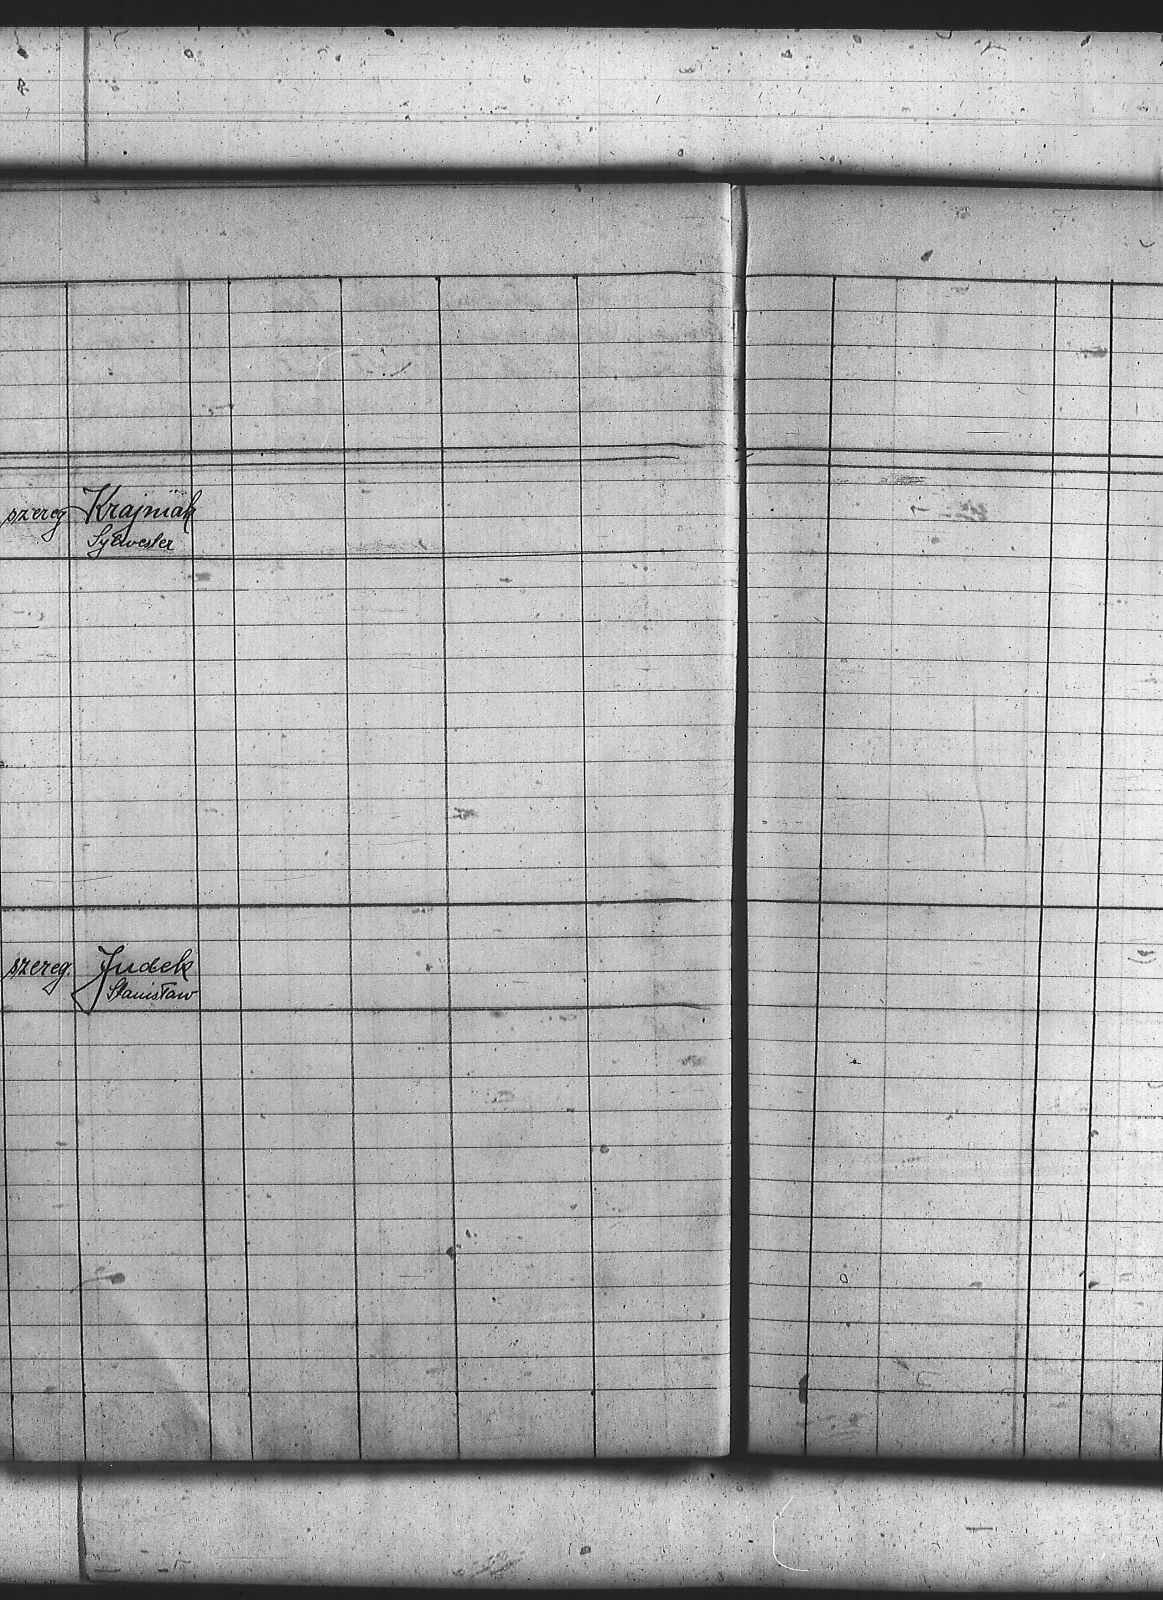 szereg Krajniak
Sylwester
szereg. Judek
Stanisław